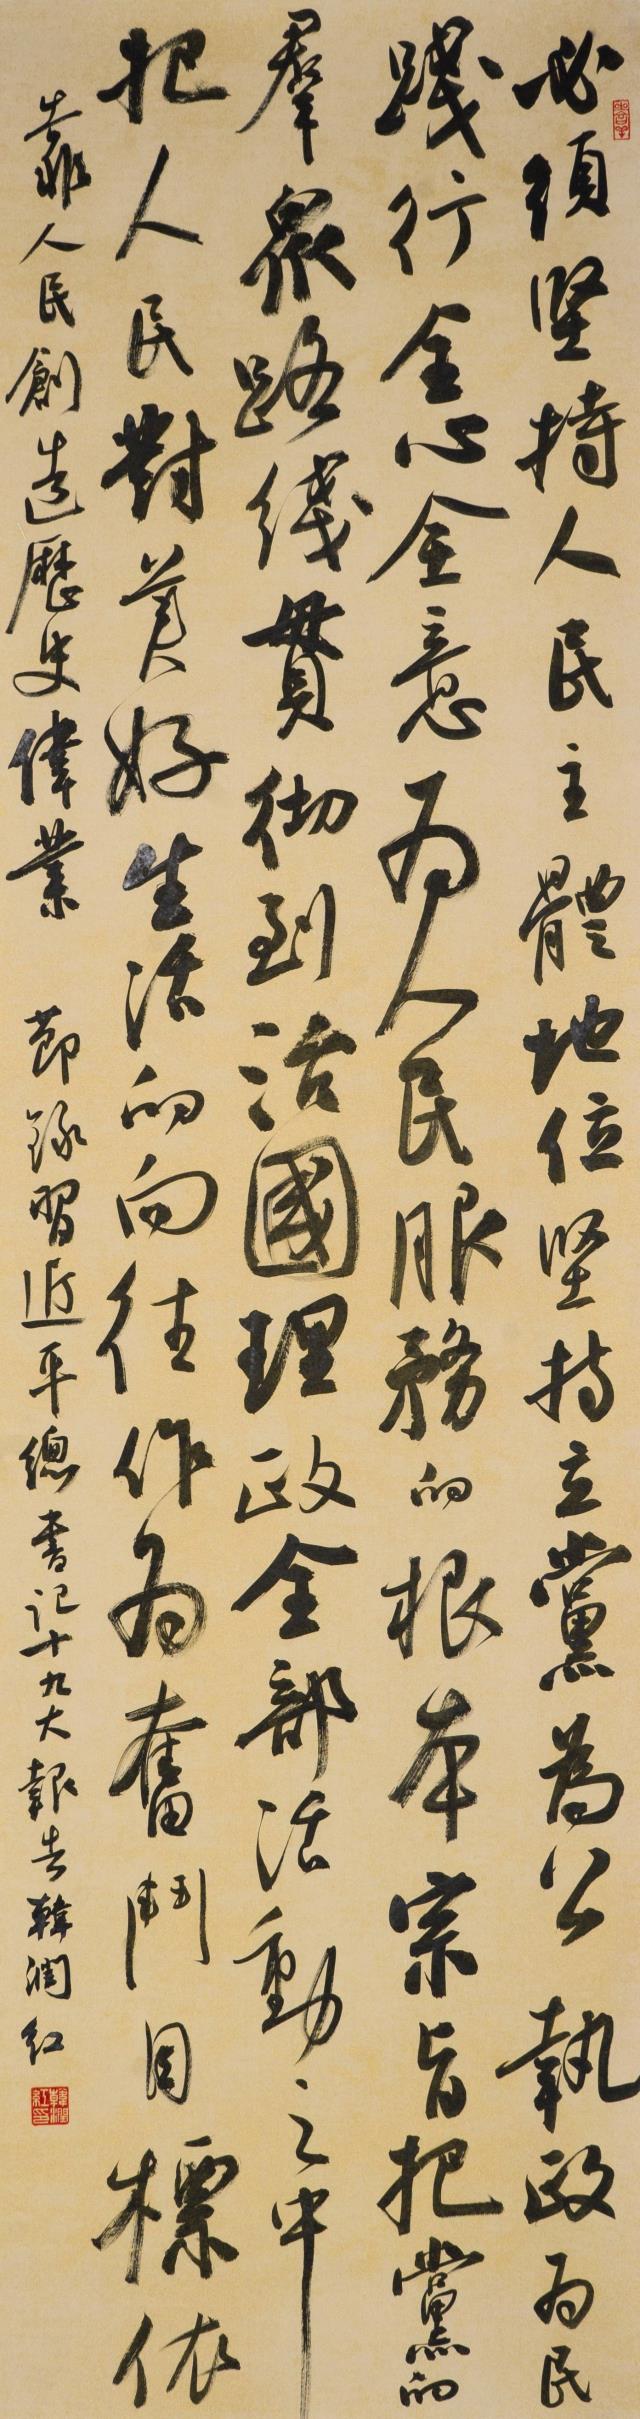 必须坚持人民主體地位坚持立黨為公執政为民
踐行全心全意为人民服務的根本宗旨把黨的
羣眾路线貫彻到治國理政全部活動之中
把人民對美好生活的向往作为奮鬥目標依
靠人民創造歷史偉業 節録習近平總書记十九大報告韓潤红
韓潤紅印